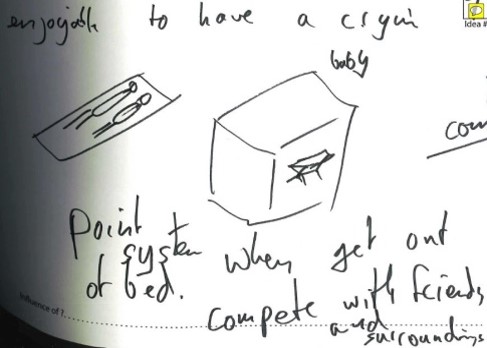 enjoyable to have a cryin
baby
Idea #
com
Point system when get out
of bed.
compete with friends
and surroundings
Influence of ?